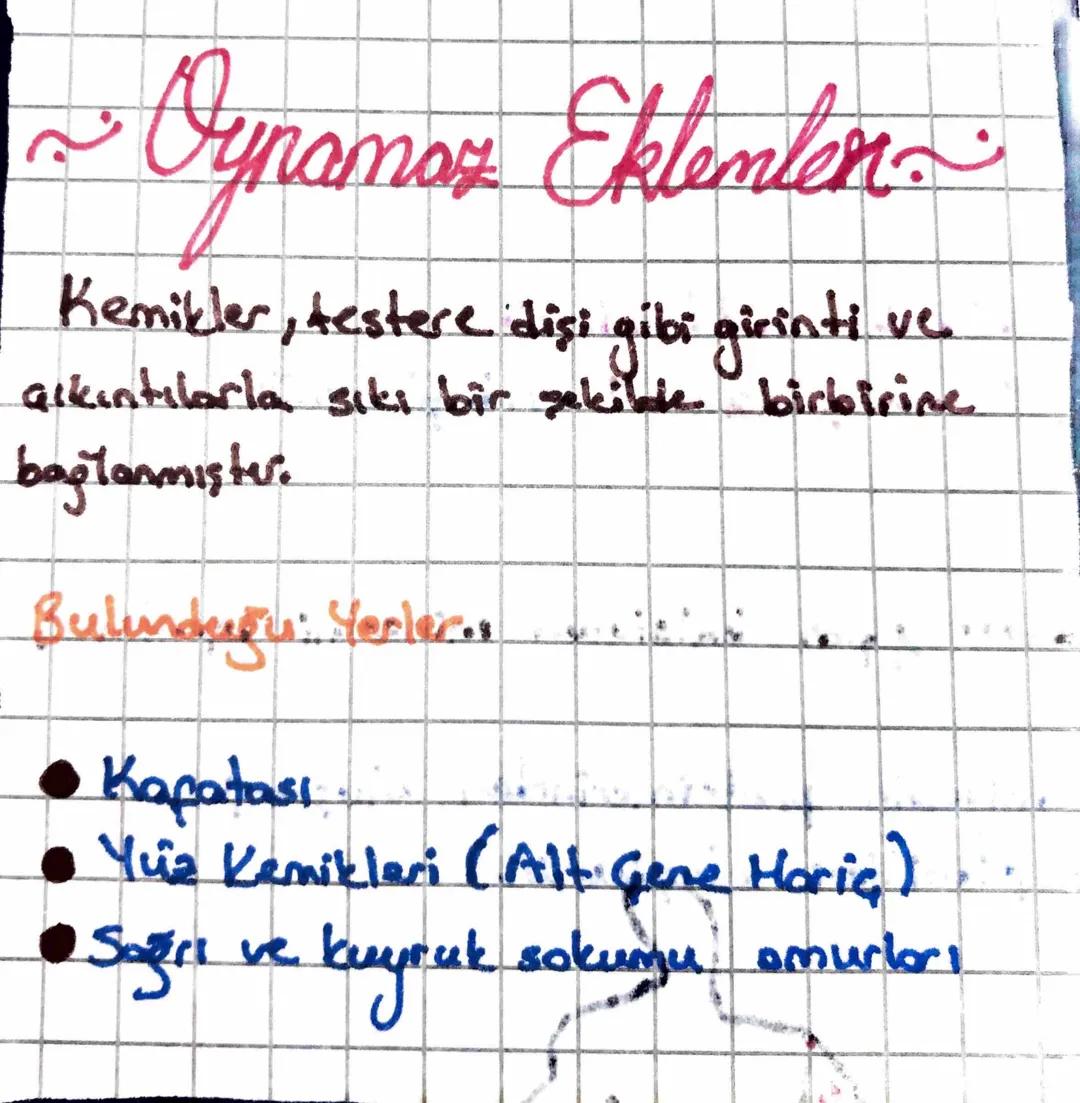 Oynamaz Eklemler
Kemikler, testere dişi gibi girinti ve
çıkıntılarla sıkı bir şekilde birbirine
bağlanmıştır.
Bulunduğu Yerler..
Kafatası
Yüz Kemikleri (Alt Çene Hariç)
Sağrı ve kuyruk sokumu omurları